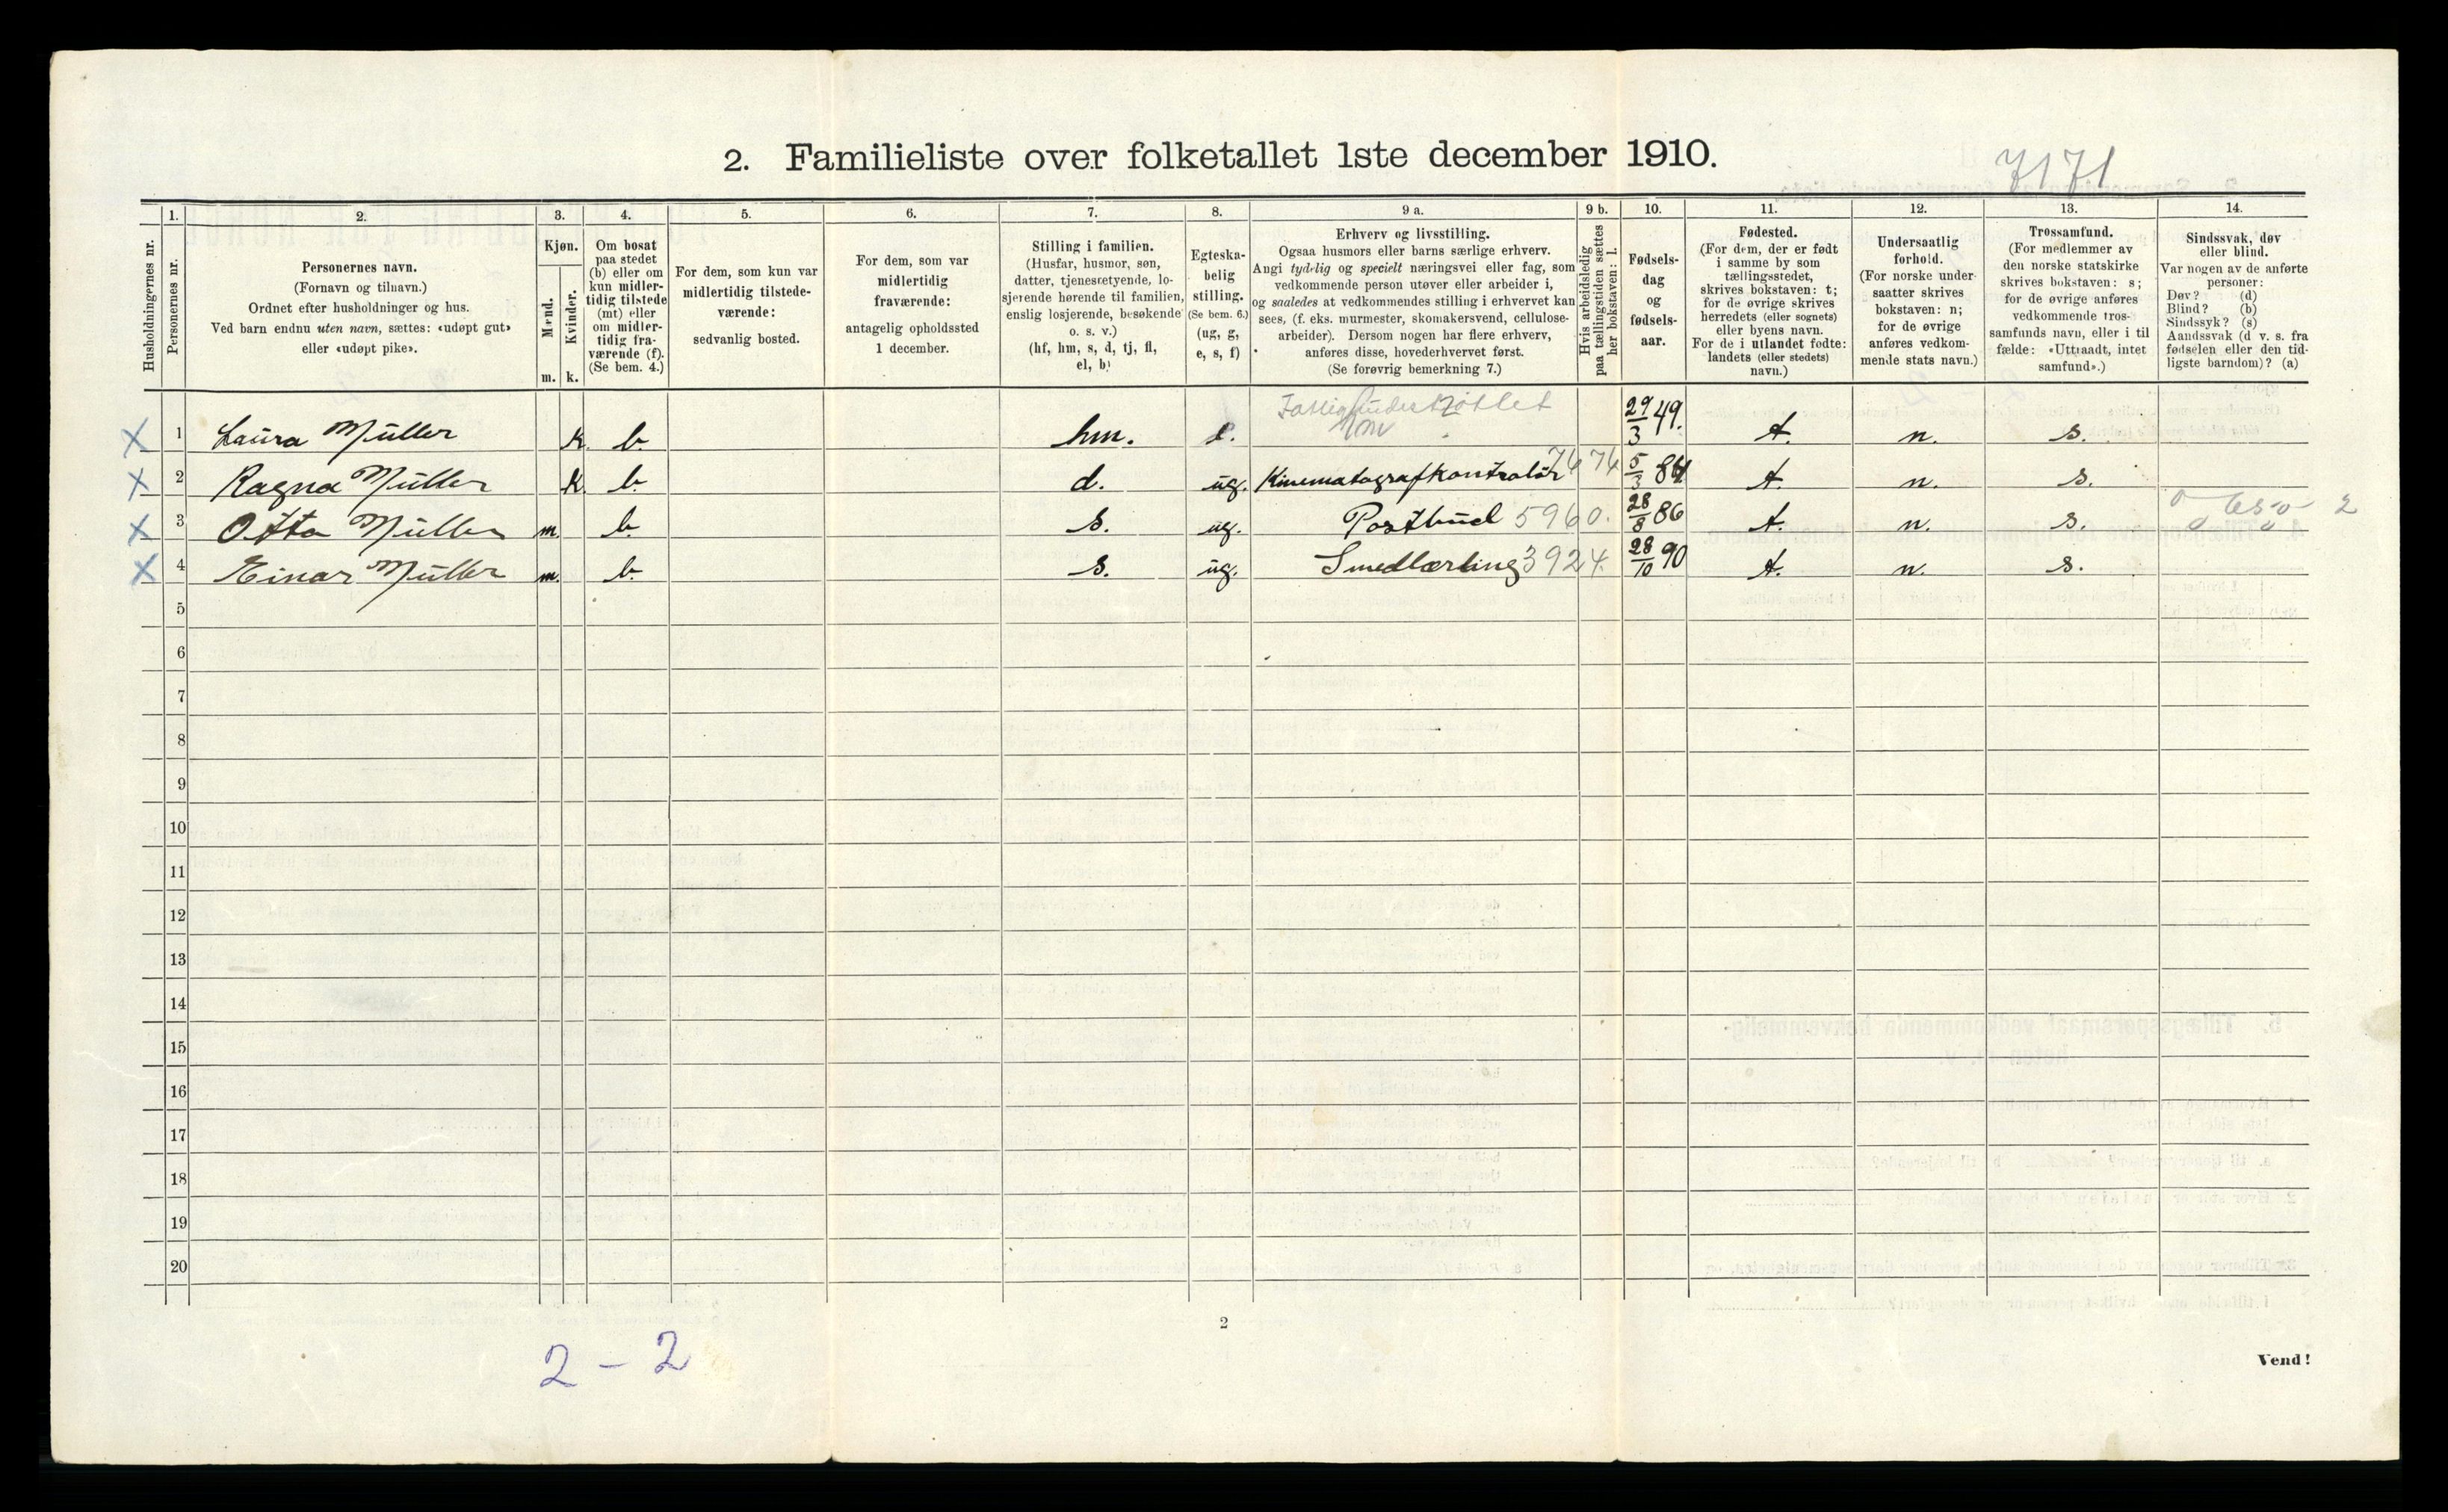 2. Familieliste over folketallet 1ste december 1910.
7171
1. 2. 3. 4. 5. 6. 7. 8. 9 a. 9 b. 10. 11. 12. 13. 14.
Husholdningernes nr.
Personernes nr.
Personernes navn.
(Fornavn og tilnavn.)
Ordnet efter husholdninger og hus.
Ved barn endnu uten navn, sættes: «udøpt gut»
eller «udøpt pike».
Kjøn.
Mænd.
Kvinder.
m. k.
Om bosat
paa stedet
(b) eller om
kun midler-
tidig tilstede
(mt) eller
om midler-
tidig fra-
værende (f).
(Se bem. 4.)
For dem, som kun var
midlertidig tilstede-
værende:
sedvanlig bosted.
For dem, som var
midlertidig
fraværende:
antagelig opholdssted
1 december.
Stilling i familien.
(Husfar, husmor, søn,
datter, tjenestetyende, lo-
sjerende hørende til familien,
enslig losjerende, besøkende
o. s. v.)
(hf, hm, s, d, tj, fl,
el, b)
Egteska-
belig
stilling.
(Se bem. 6.)
(ug, g,
e, s, f)
Erhverv og livsstilling.
Ogsaa husmors eller barns særlige erhverv.
Angi tydelig og specielt næringsvei eller fag, som
vedkommende person utøver eller arbeider i,
og saaledes at vedkommendes stilling i erhvervet kan
sees, (f. eks. murmester, skomakersvend, cellulose-
arbeider). Dersom nogen har flere erhverv,
anføres disse, hovederhvervet først.
(Se forøvrig bemerkning 7.)
Hvis arbeidsledig
paa tællingstiden sættes
her bokstaven: l.
Fødsels-
dag
og
fødsels-
aar.
Fødested.
(For dem, der er født
i samme by som
tællingsstedet,
skrives bokstaven: t;
for de øvrige skrives
herredets (eller sognets)
eller byens navn.
For de i utlandet fødte:
landets (eller stedets)
navn.)
Undersaatlig
forhold.
(For norske under-
saatter skrives
bokstaven: n;
for de øvrige
anføres vedkom-
mende stats navn.)
Trossamfund.
(For medlemmer av
den norske statskirke
skrives bokstaven: s;
for de øvrige anføres
vedkommende tros-
samfunds navn, eller i til-
fælde: «Uttraadt, intet
samfund».)
Sindssvak, døv
eller blind.
Var nogen av de anførte
personer:
Døv? (d)
Blind? (b)
Sindssyk? (s)
Aandssvak (d v. s. fra
fødselen eller den tid-
ligste barndom)? (a)
X 1 Laura Müller k. b. hm. e. 29/3 49. t. n. s.
X 2 Ragna Müller k. b. d. ug. Kinematografkontrolør 74 74 5/3 84 t. n. s.
X 3 Otto Müller m. b. s. ug. Postbud 5960. 28/8 86 t. n. s.
X 4 Einar Müller m. b. s. ug. Smedlærling 3924. 28/10 90 t. n. s.
5
6
7
8
9
10
11
12
13
14
15
16
17
18
19
20
2
2 - 2
Vend!